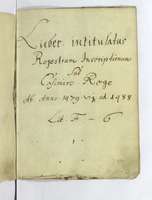 Liber intitulatus
Regestrum Inscriptionum
Sub
Casimiro Rege
Ab Anno 1479 usq ad 1488
Lit. F – G